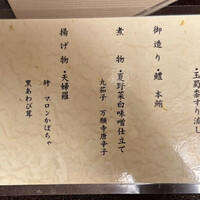 ・玉蜀黍すり流し
御造り ・鱧 本鮪
煮物 ・夏野菜白味噌仕立て
丸茄子 万願寺唐辛子
揚げ物 ・天婦羅
鱚 マロンかぼちゃ
黒あわび茸